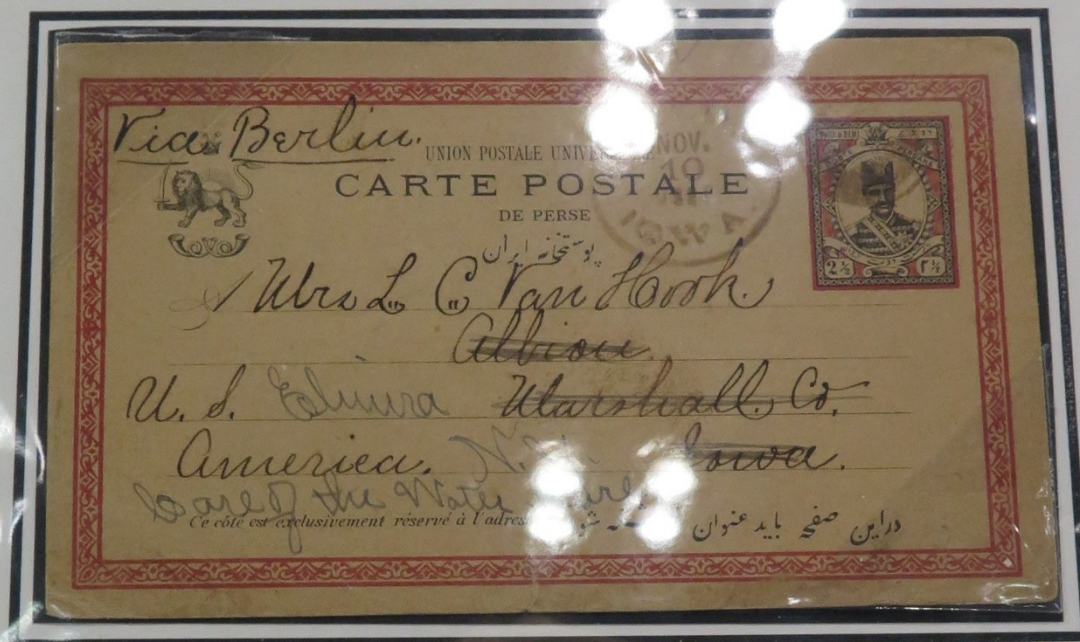 Via Berlin.
UNION POSTALE
CARTE POSTALE
DE PERSE
پوستخانه ایران
NOV.
IOWA.
2½ ۲½
Mrs L C Van Hook.
Albion
U. S. Elmira Marshall Co.
America. N. Iowa.
Care of the Water
Ce côté est exclusivement réservé à l'adres
دراین صفحه باید عنوان